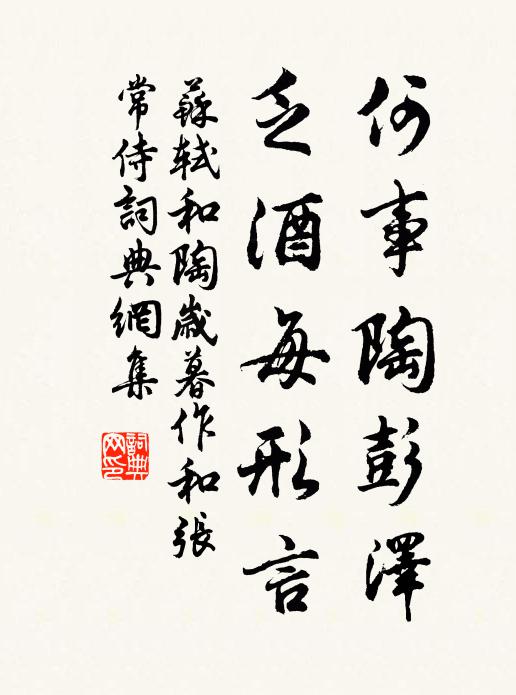 何事陶彭澤
乏酒每形言
蘇軾和陶歲暮作和張
常侍詞典網集
詞典网印